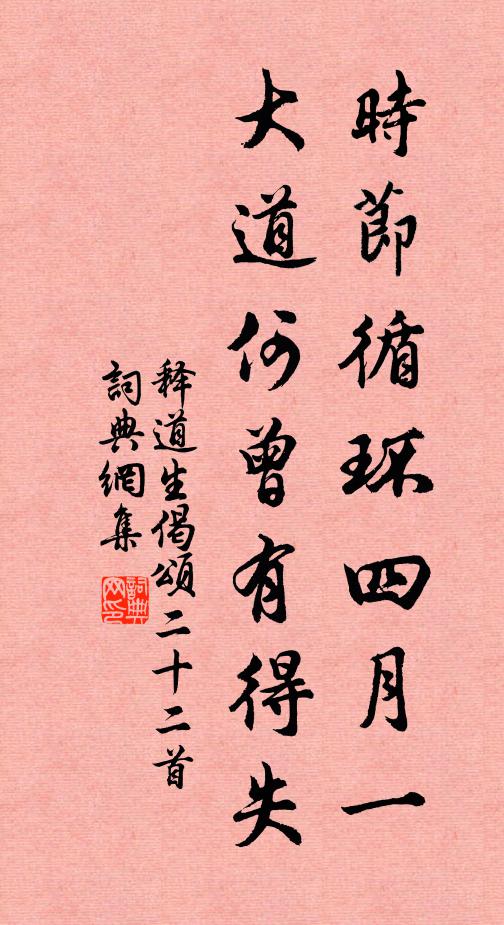 時節循环四月一
大道何曾有得失
释道生偈頌二十二首
詞典網集
詞典网印